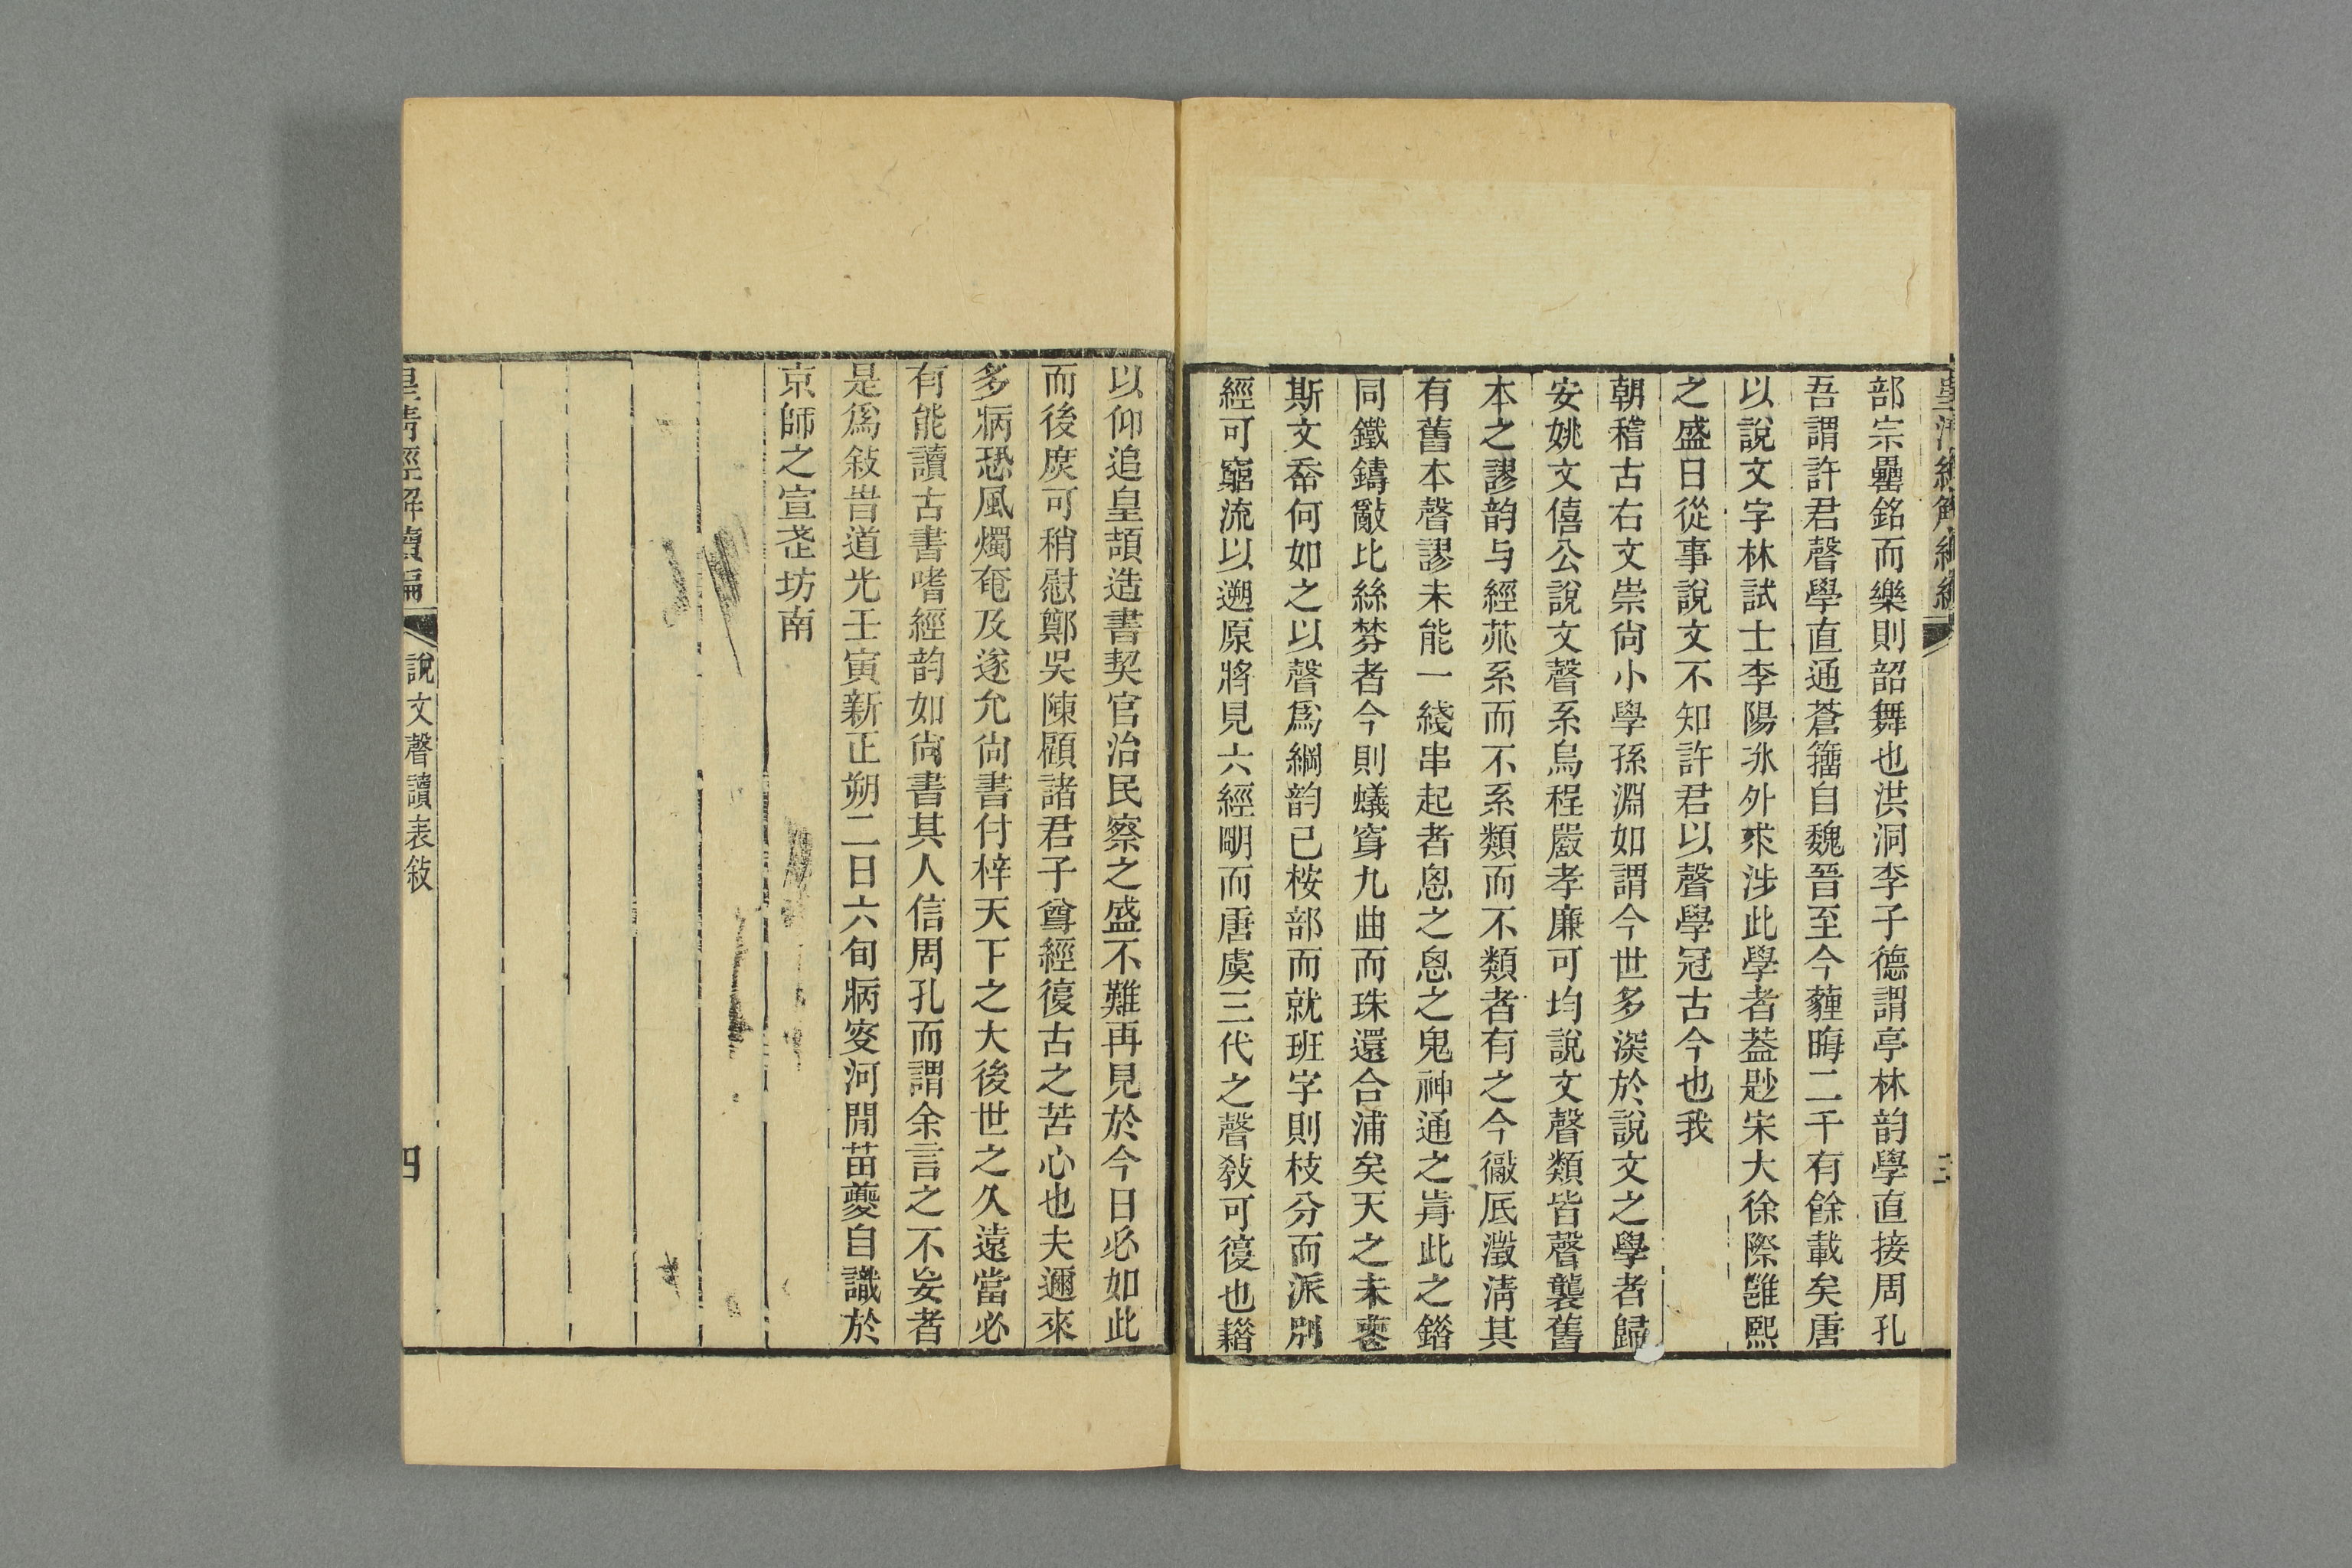 皇清經解續編
三
部宗罍銘而樂則韶舞也洪洞李子德謂亭林韵學直接周孔
吾謂許君聲學直通蒼籀自魏晉至今薶晦二千有餘載矣唐
以說文字林試士李陽冰外罙涉此學者葢尟宋大徐際雝熙
之盛日從事說文不知許君以聲學冠古今也我
朝稽古右文崇尙小學孫淵如謂今世多深於說文之學者歸
安姚文僖公說文聲系烏程嚴孝廉可均說文聲類皆聲襲舊
本之謬韵与經苂系而不系類而不類者有之今徶底澂淸其
有舊本聲謬未能一綫串起者恖之恖之鬼神通之歬此之錯
同鐵鑄黻比絲棼者今則蟻穿九曲而珠還合浦矣天之未䘮
斯文㮈何如之以聲爲綱韵已桉部而就班字則枝分而派別
經可竆流以遡原將見六經朙而唐虞三代之聲敎可復也藉
以仰追皇頡造書契官治民察之盛不難再見於今日必如此
而後庶可稍慰鄭吳陳顧諸君子尊經復古之苦心也夫邇來
多病恐風燭奄及遂允尙書付梓天下之大後世之久遠當必
有能讀古書嗜經韵如尙書其人信周孔而謂余言之不妄者
是爲敍旹道光壬寅新正朔二日六旬病叜河閒苗夔自識於
京師之宣武坊南
皇淸經解續編
說文聲讀表敍
四